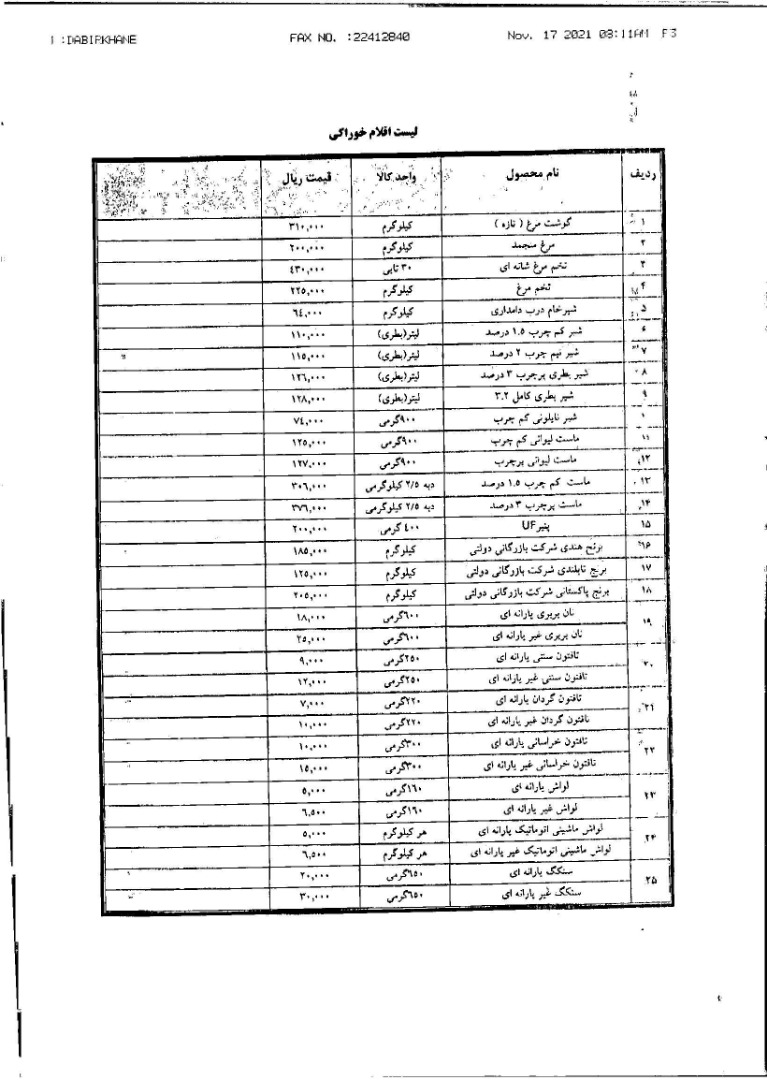 :DABIRKHANE FAX NO. :22412840 Nov. 17 2021 08:11AM P3
لیست اقلام خوراکی
ردیف نام محصول واحد کالا قیمت ریال
۱ گوشت مرغ ( تازه ) کیلوگرم ۳۱۰,۰۰۰
۲ مرغ منجمد کیلوگرم ۲۰۰,۰۰۰
۳ تخم مرغ شانه ای ۳۰ تایی ٤۳۰,۰۰۰
۴ تخم مرغ کیلوگرم ۲۲۵,۰۰۰
۵ شیرخام درب دامداری کیلوگرم ٦٤,۰۰۰
۶ شیر کم چرب ۱.۵ درصد لیتر(بطری) ۱۱۰,۰۰۰
۷ شیر نیم چرب ۲ درصد لیتر(بطری) ۱۱۵,۰۰۰
۸ شیر بطری پرچرب ۳ درصد لیتر(بطری) ۱۲٦,۰۰۰
۹ شیر بطری کامل ۳.۲ لیتر(بطری) ۱۲۸,۰۰۰
شیر نایلونی کم چرب ۹۰۰گرمی ۷٤,۰۰۰
۱۱ ماست لیوانی کم چرب ۹۰۰گرمی ۱۲۵,۰۰۰
۱۲ ماست لیوانی پرچرب ۹۰۰گرمی ۱۲۷,۰۰۰
۱۳ ماست کم چرب ۱.۵ درصد دبه ۲/۵ کیلوگرمی ۳۰٦,۰۰۰
۱۴ ماست پرچرب ۳ درصد دبه ۲/۵ کیلوگرمی ۳۷٦,۰۰۰
۱۵ پنیرUF ٤۰۰ گرمی ۲۰۰,۰۰۰
۱۶ برنج هندی شرکت بازرگانی دولتی کیلوگرم ۱۸۵,۰۰۰
۱۷ برنج تایلندی شرکت بازرگانی دولتی کیلوگرم ۱۲۵,۰۰۰
۱۸ برنج پاکستانی شرکت بازرگانی دولتی کیلوگرم ۲۰۵,۰۰۰
۱۹ نان بربری یارانه ای ٦۰۰گرمی ۱۸,۰۰۰
نان بربری غیر یارانه ای ٦۰۰گرمی ۲۵,۰۰۰
۲۰ تافتون سنتی یارانه ای ۲۵۰گرمی ۹,۰۰۰
تافتون سنتی غیر یارانه ای ۲۵۰گرمی ۱۲,۰۰۰
۲۱ تافتون گردان یارانه ای ۲۲۰گرمی ۷,۰۰۰
تافتون گردان غیر یارانه ای ۲۲۰گرمی ۱۰,۰۰۰
۲۲ تافتون خراسانی یارانه ای ۳۰۰گرمی ۱۰,۰۰۰
تافتون خراسانی غیر یارانه ای ۳۰۰گرمی ۱۵,۰۰۰
۲۳ لواش یارانه ای ۱٦۰گرمی ۵,۰۰۰
لواش غیر یارانه ای ۱٦۰گرمی ٦,۵۰۰
۲۴ لواش ماشینی اتوماتیک یارانه ای هر کیلوگرم ۵,۰۰۰
لواش ماشینی اتوماتیک غیر یارانه ای هر کیلوگرم ٦,۵۰۰
۲۵ سنگک یارانه ای ٦۵۰گرمی ۲۰,۰۰۰
سنگک غیر یارانه ای ٦۵۰گرمی ۳۰,۰۰۰